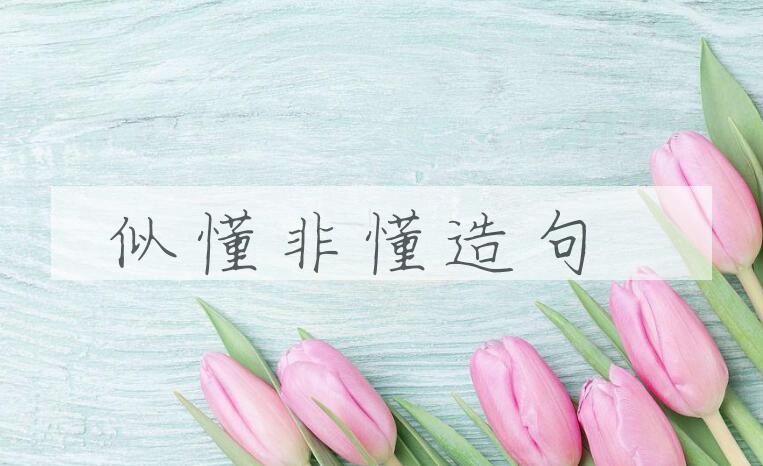 似懂非懂造句